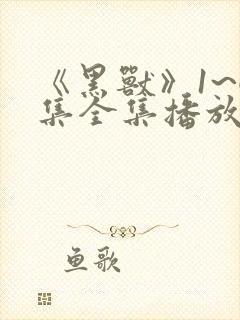 《黑獸》1~
集全集播放
鱼歌